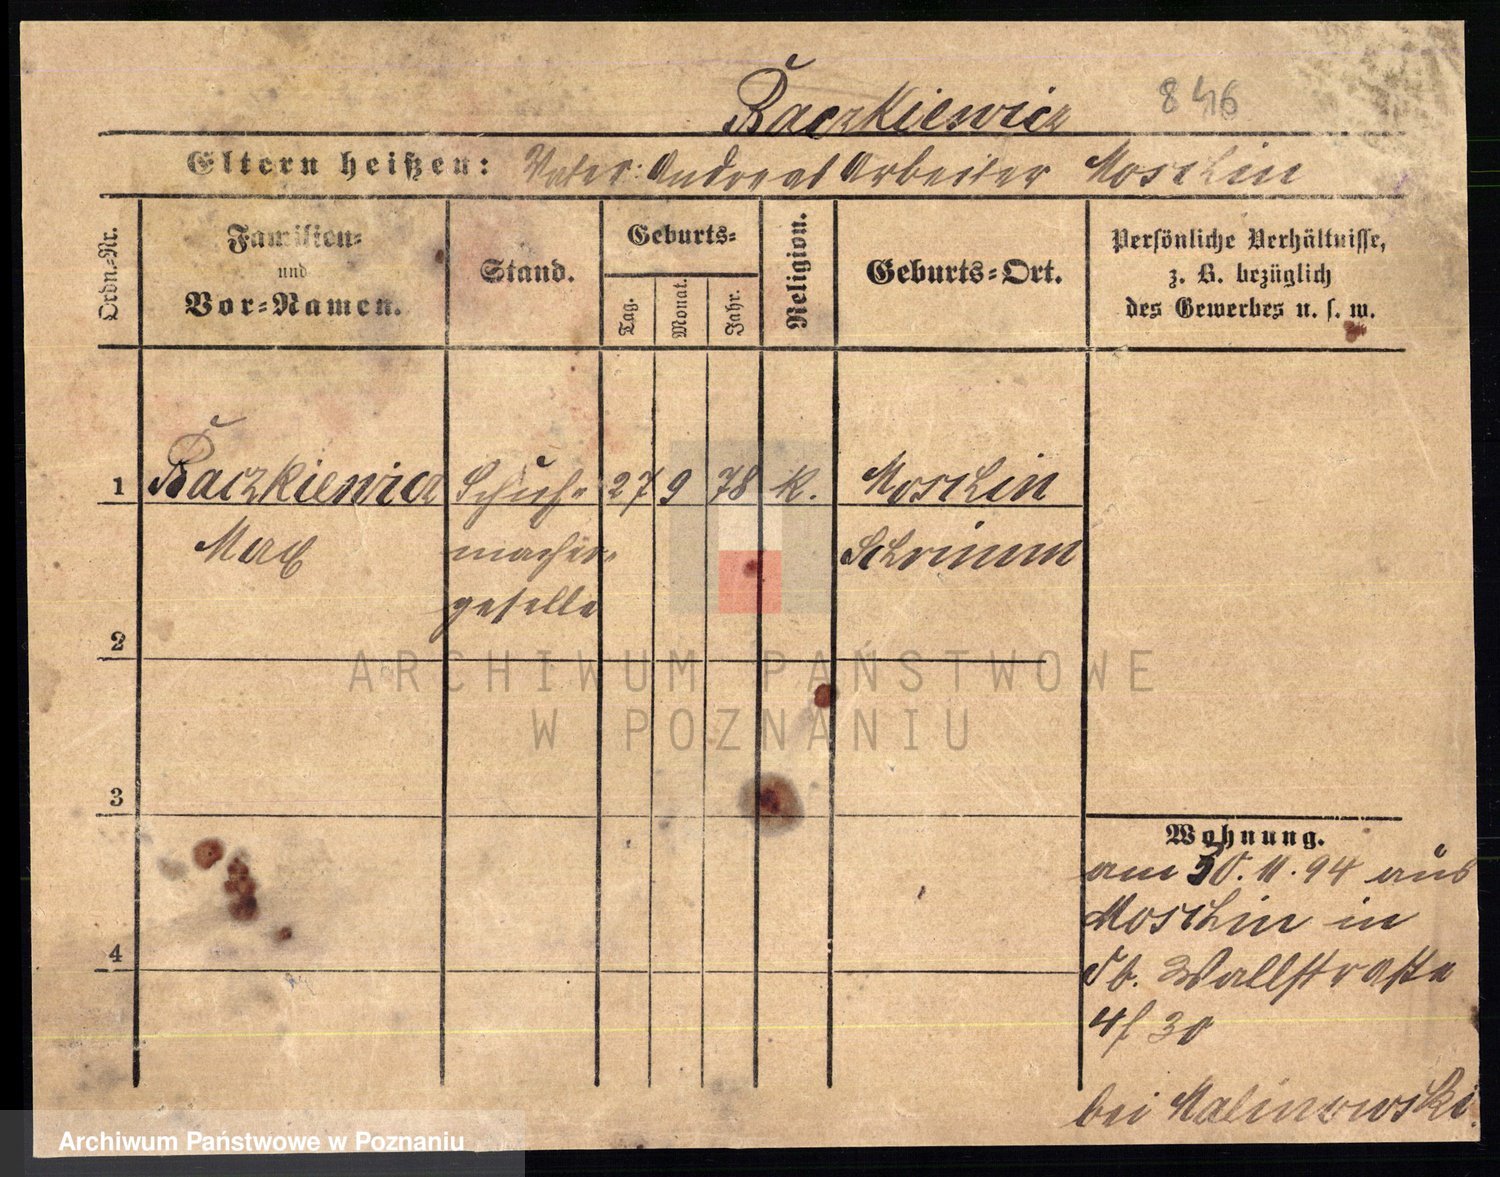 Baczkiewicz 846
Eltern heißen: Vater: Andreas Arbeiter Moschin
Ordn.-Nr.
Familien-
und
Vor-Namen.
Stand.
Geburts-
Tag.
Monat.
Jahr.
Religion.
Geburts-Ort.
Persönliche Verhältnisse,
z. B. bezüglich
des Gewerbes u. s. w.
1 Baczkiewicz Schuh- 27 9 78 K. Moschin
Max macher- Schrimm
geselle
2
ARCHIWUM PAŃSTWOWE
W POZNANIU
3
Wohnung.
am 30. 11. 94 aus
Moschin in
Wallstraße
4
30
bei Malinowski.
Archiwum Państwowe w Poznaniu